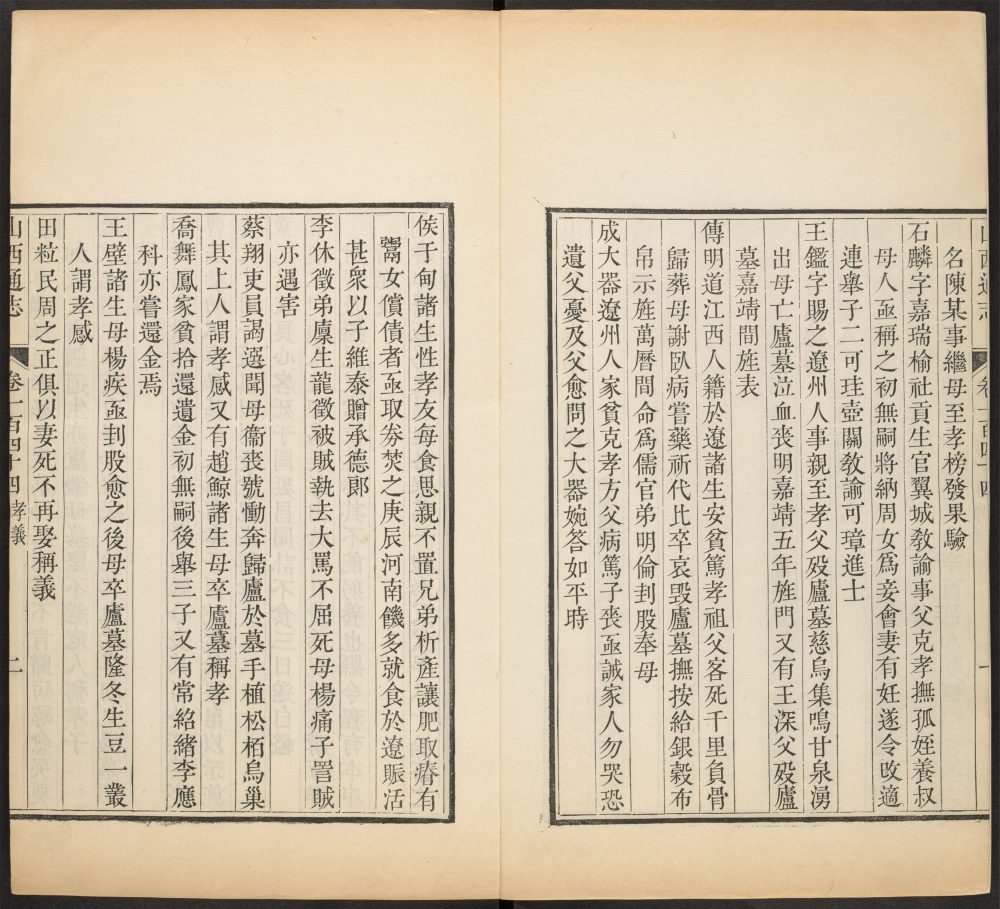 山西通志 卷一百四十四 一
名陳某事繼母至孝榜發果驗
石麟字嘉瑞榆社貢生官翼城敎諭事父克孝撫孤姪養叔
母人亟稱之初無嗣將納周女爲妾會妻有妊遂令改適
連舉子二可珪壺關敎諭可璋進士
王鑑字賜之遼州人事親至孝父歿廬墓慈烏集鳴甘泉湧
出母亡廬墓泣血喪明嘉靖五年旌門又有王深父歿廬
墓嘉靖間旌表
傅明道江西人籍於遼諸生安貧篤孝祖父客死千里負骨
歸葬母謝臥病嘗藥祈代比卒哀毀廬墓撫按給銀穀布
帛示旌萬曆間命爲儒官弟明倫刲股奉母
成大器遼州人家貧克孝方父病篤子喪亟誡家人勿哭恐
遺父憂及父愈問之大器婉答如平時
侯于甸諸生性孝友每食思親不置兄弟析產讓肥取瘠有
鬻女償債者亟取劵焚之庚辰河南饑多就食於遼賑活
甚衆以子維泰贈承德郞
李休徵弟廩生龍徵被賊執去大罵不屈死母楊痛子詈賊
亦遇害
蔡翔吏員謁選聞母衞喪號慟奔歸廬於墓手植松栢烏巢
其上人謂孝感又有趙鯨諸生母卒廬墓稱孝
喬舞鳳家貧拾還遺金初無嗣後舉三子又有常紹緒李應
科亦嘗還金焉
王璧諸生母楊疾亟刲股愈之後母卒廬墓隆冬生豆一叢
人謂孝感
田粒民周之正俱以妻死不再娶稱義
山西通志 卷一百四十四 孝義 二